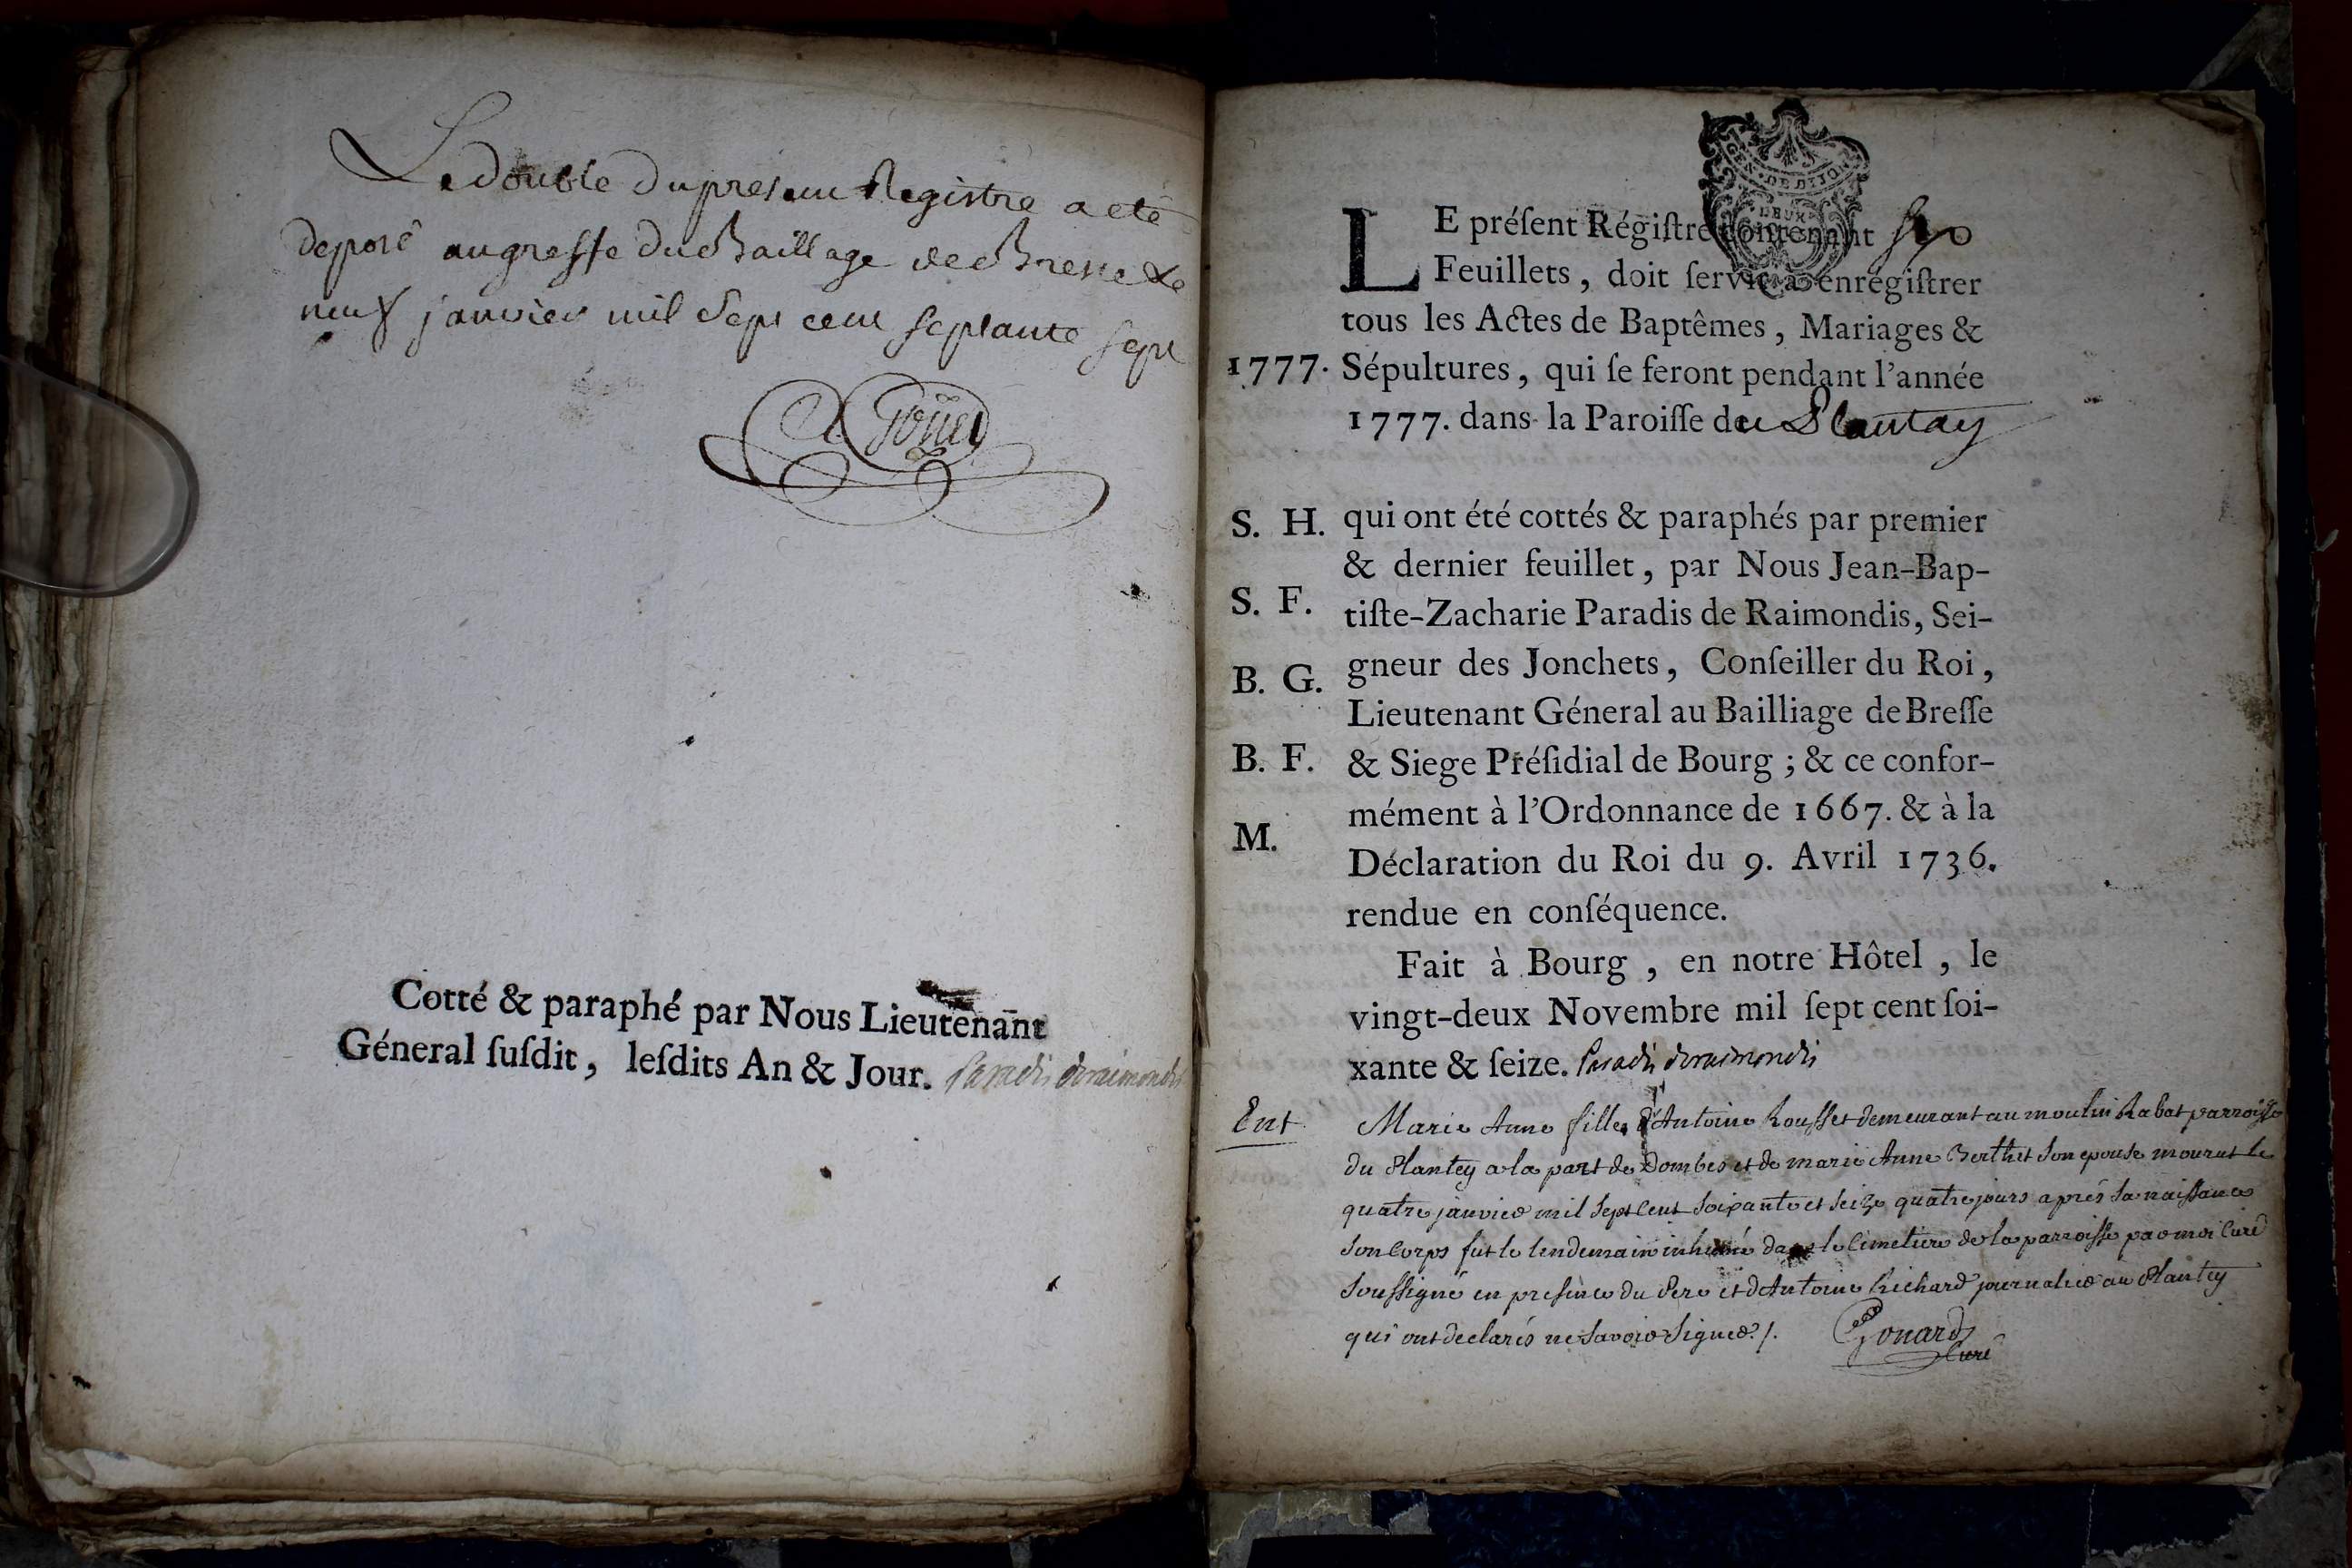 Le double du present Registre a eté
deposé au greffe du Bailliage de Bresse le
neuf janvier mil sept cent septante sept
Cotté & paraphé par Nous Lieutenant
Géneral ſuſdit, leſdits An & Jour. Paradis deraimondis
GEN. DE DIJON
DEUX
LE préſent Régiſtre contenant
Feuillets, doit ſervir à enrégiſtrer
tous les Actes de Baptêmes, Mariages &
1777. Sépultures, qui ſe feront pendant l'année
1777. dans la Paroiſſe du Plantay
S. H. qui ont été cottés & paraphés par premier
& dernier feuillet, par Nous Jean-Bap-
S. F. tiſte-Zacharie Paradis de Raimondis, Sei-
B. G. gneur des Jonchets, Conſeiller du Roi,
Lieutenant Géneral au Bailliage de Breſſe
B. F. & Siege Préſidial de Bourg ; & ce confor-
mément à l'Ordonnance de 1667. & à la
M. Déclaration du Roi du 9. Avril 1736.
rendue en conſéquence.
Fait à Bourg, en notre Hôtel, le
vingt-deux Novembre mil ſept cent ſoi-
xante & ſeize. Paradis deraimondis
Ent Marie Anne fille d'Antoine Rousset demeurant au moulin Rabat parroisse
du Plantey a la part de Dombes et de marie Anne Berthet son epouse mourut le
quatre janvier mil sept cent soixante et seize quatre jours aprés sa naissance
son corps fut le lendemain inhumé dans le cimetiere de la parroisse par moi curé
soussigné en presence du Pere et d'Antoine Richard journalier au Plantey
qui ont declarés ne savoir signer ./. Gonard
Curé